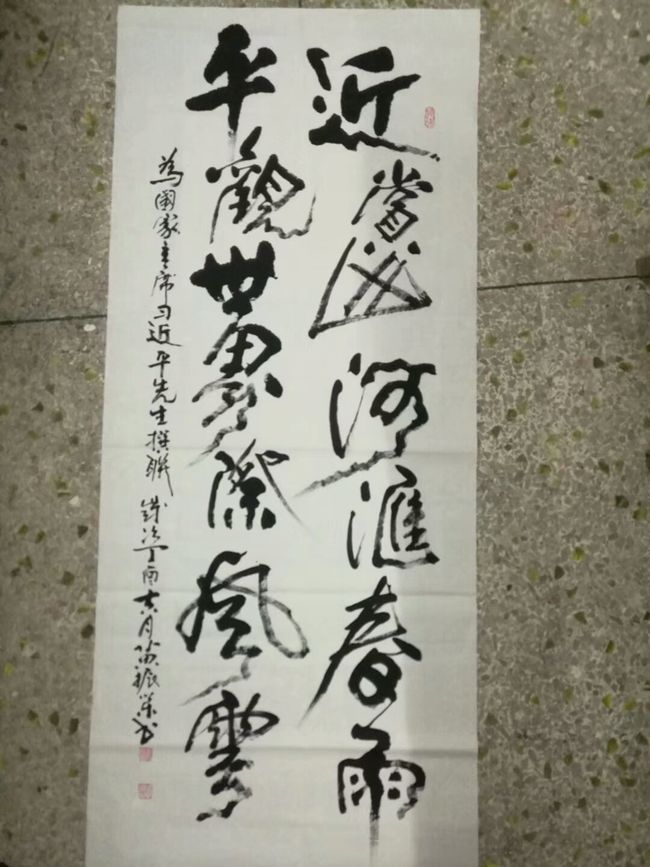 近賞山河滙春雨
平觀世界際風雲
為國家主席习近平先生撰聯 歲次丁酉六月陳振業书